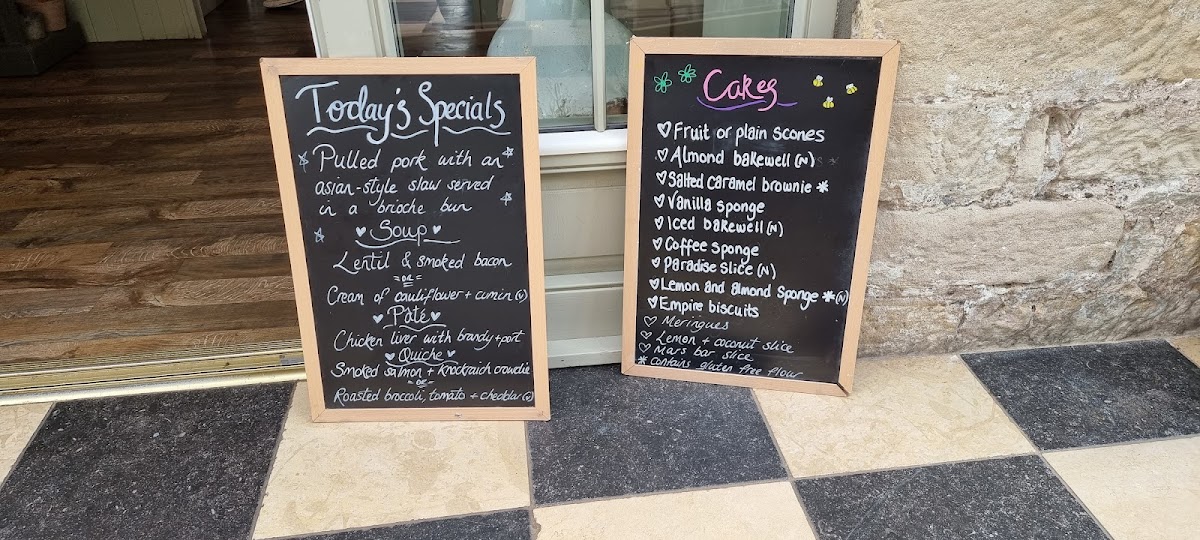 Today's Specials
Pulled pork with an
asian-style slaw served
in a brioche bun
Soup
Lentil & smoked bacon
OR
Cream of cauliflower + cumin (v)
Pâté
Chicken liver with brandy + port
Quiche
Smoked salmon + knockraich crowdie
OR
Roasted broccoli, tomato + cheddar (v)
Cakes
Fruit or plain scones
Almond bakewell (N)
Salted caramel brownie *
Vanilla sponge
Iced bakewell (N)
Coffee sponge
Paradise slice (N)
Lemon and almond sponge * (N)
Empire biscuits
Meringues
Lemon + coconut slice
Mars bar slice
* contains gluten free flour